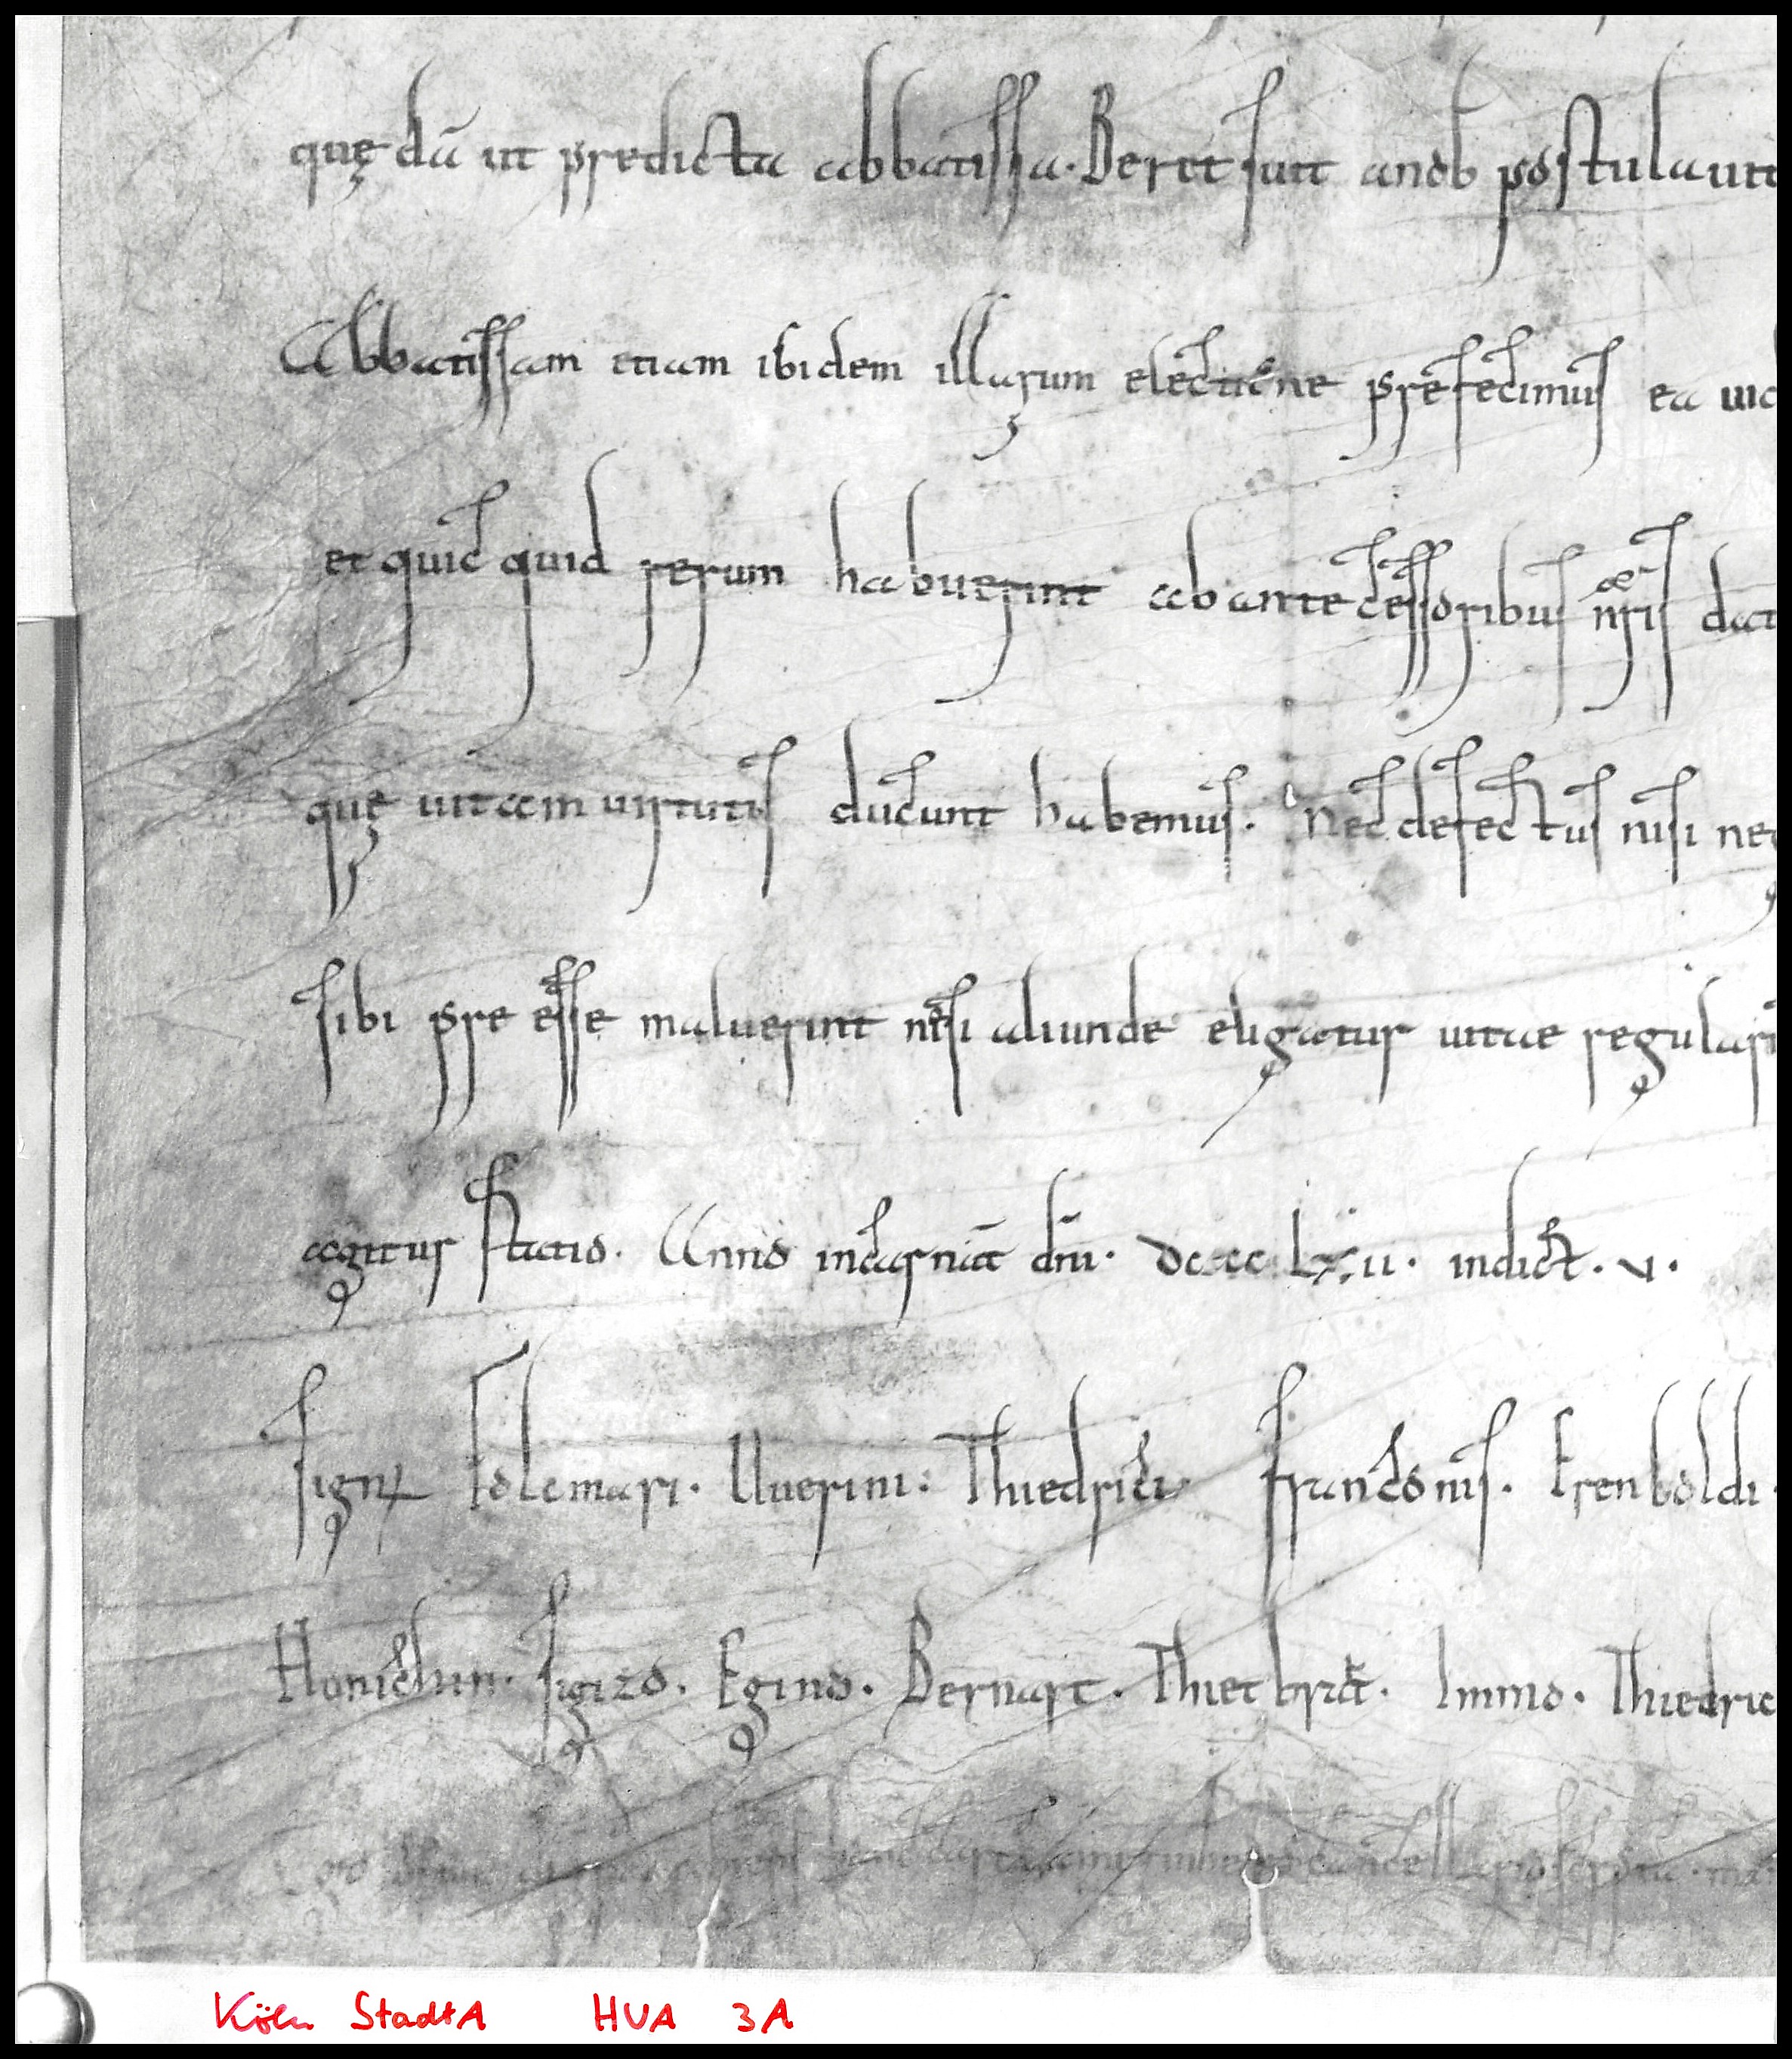 quędā ut predicta abbatissa. Beretsuit anob postulauit
Abbatissam etiam ibidem illarum electione prefecimus ea uid
et quicquid rerum habuerint abantecessoribus nrīs dat
quę uitam uirtutis ducunt habemus. Nec defectus nisi nec
sibi pre esse maluerint nesi aliunde eligatur uitae regulari
agitur statio. Anno incarnāt dn̄i. dcccc lxii. indict. v.
Sign Folcmari. Uuerini. Thiedrici Franconis. Erenboldi.
Honichin. Sigizo. Egino. Bernart. Thietbrāt. Immo. Thiedric
Köln StadtA HUA 3A